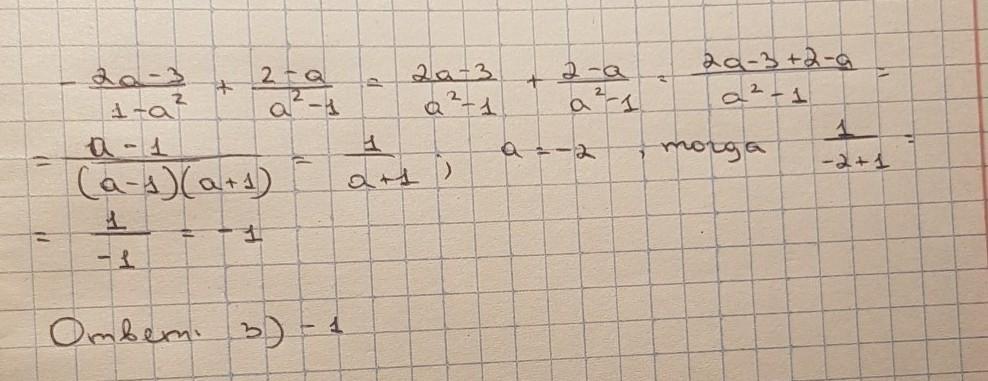 - (2a-3)/(1-a²) + (2-a)/(a²-1) = (2a-3)/(a²-1) + (2-a)/(a²-1) = (2a-3+2-a)/(a²-1) =
= (a-1)/((a-1)(a+1)) = 1/(a+1); a = -2, тогда 1/(-2+1) =
= 1/(-1) = -1
Ответ: 3) -1